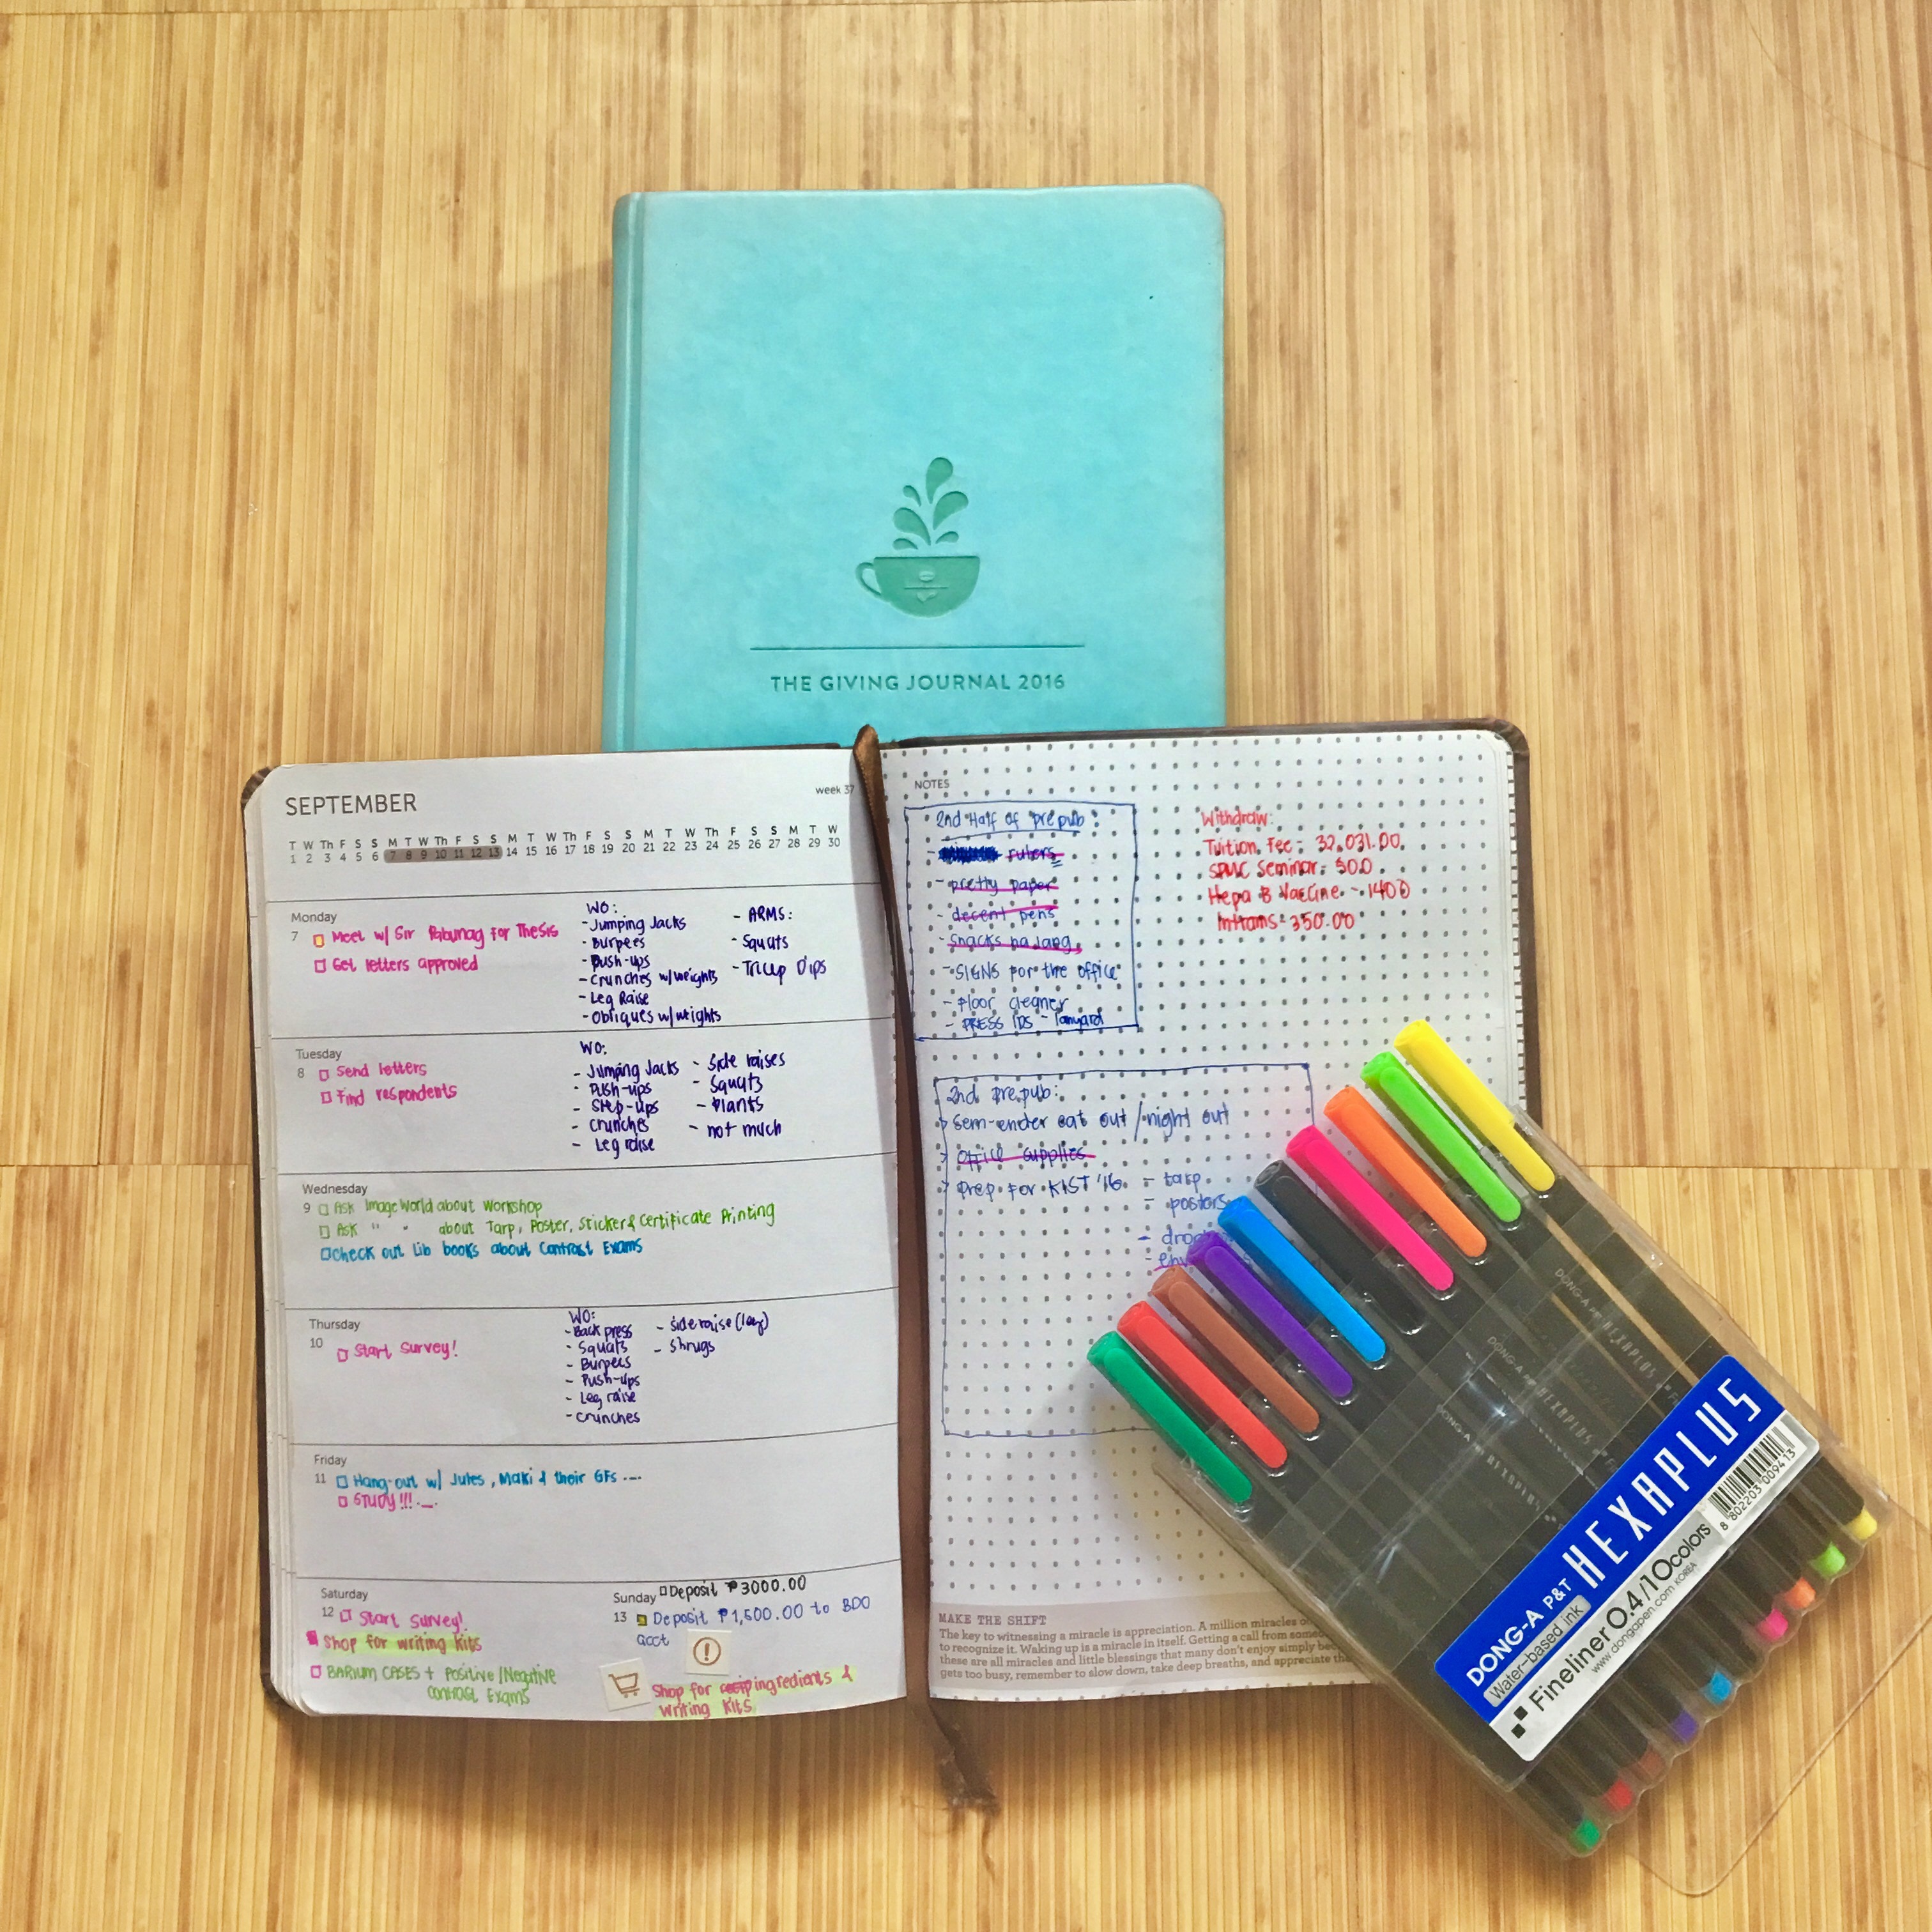 THE GIVING JOURNAL 2016
SEPTEMBER
week 37
T W Th F S S M T W Th F S S M T W Th F S S M T W Th F S S M T W
1 2 3 4 5 6 7 8 9 10 11 12 13 14 15 16 17 18 19 20 21 22 23 24 25 26 27 28 29 30
Monday
7
Meet w/ Sir for Thesis
Get letters approved
WO:
- Jumping Jacks
- Burpees
- Push-ups
- Crunches w/weights
- Leg Raise
- Obliques w/weights
- ARMS:
- Squats
- Tricep Dips
Tuesday
8
Send letters
Find respondents
WO:
- Jumping Jacks
- Push-ups
- Step-ups
- Crunches
- Leg raise
- Side raises
- Squats
- Plants
- not much
Wednesday
9
Ask ImageWorld about Workshop
Ask " " about Tarp, Poster, Sticker & Certificate Printing
Check out Lib books about Contrast Exams
Thursday
10
Start Survey!
WO:
- Back press
- Squats
- Burpees
- Push-ups
- Leg raise
- Crunches
- Side raise (leg)
- Shrugs
Friday
11
Hang-out w/ Jules, Maki & their GFs ....
STUDY!!! ._.
Saturday
12
Start Survey!
Shop for writing kits
BARIUM CASES + Positive/Negative
Contrast Exams
Sunday
Deposit ₱3000.00
13
Deposit ₱1,500.00 to BDO
acct
!
Shop for ingredients &
writing kits
NOTES
2nd Half of prepub:
- rulers
- pretty paper
- decent pens
- Snacks na lang
- SIGNS for the office
- Floor cleaner
- PRESS IDS - lanyard
Withdraw:
Tuition Fee: 32,031.00
SPMC Seminar: 500
Hepa B Vaccine - 1400
Intrams - 350.00
2nd prepub:
> Sem-ender eat out / night out
> Office supplies
> Prep for KIST '16
- tarp
- posters
MAKE THE SHIFT
The key to witnessing a miracle is appreciation. A million miracles
to recognize it. Waking up is a miracle in itself. Getting a call from
these are all miracles and little blessings that many don't enjoy simply
gets too busy, remember to slow down, take deep breaths, and appreciate
DONG-A P&T HEXAPLUS
Water-based ink
Fineliner 0.4/10colors
www.dongapen.com KOREA
8 802203 009413
DONG-A P&T HEXAPLUS
DONG-A P&T HEXAPLUS
DONG-A P&T HEXAPLUS